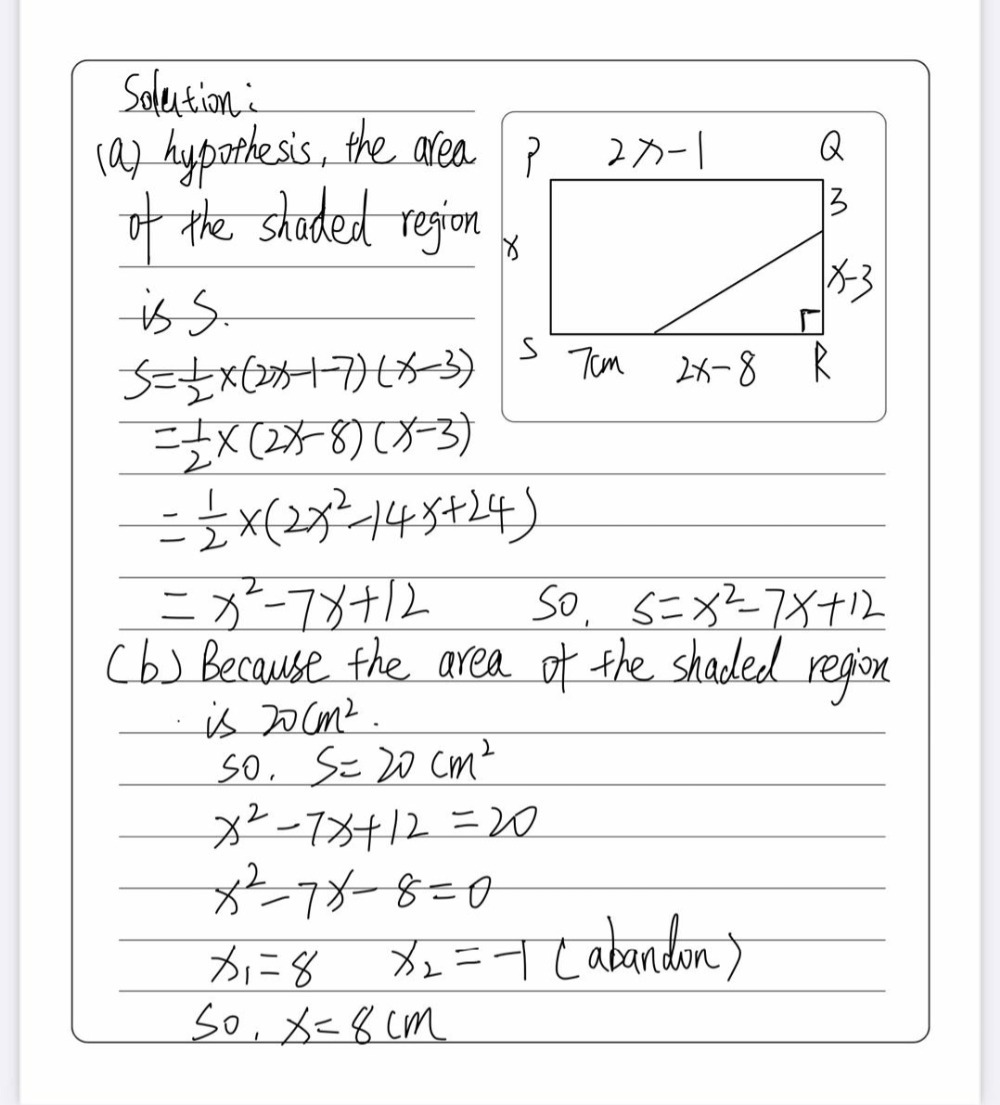 Solution:
(a) hypothesis, the area
of the shaded region
is S.
S=½×(2x-1-7)(x-3)
=½×(2x-8)(x-3)
=½×(2x²-14x+24)
=x²-7x+12 So, S=x²-7x+12
P 2x-1 Q
3
x
x-3
S 7cm 2x-8 R
(b) Because the area of the shaded region
is 20cm².
so. S=20 cm²
x²-7x+12=20
x²-7x-8=0
x₁=8 x₂=-1 (abandon)
So, x=8cm